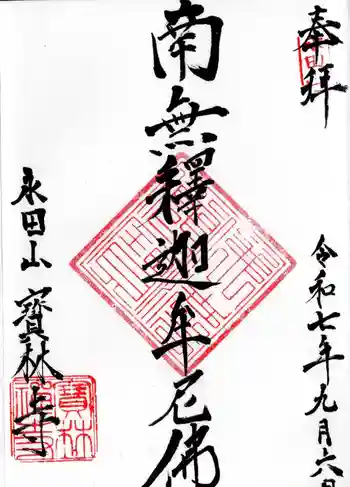 奉拝
令和七年九月六日
南無釋迦牟尼佛
永田山 寳林寺